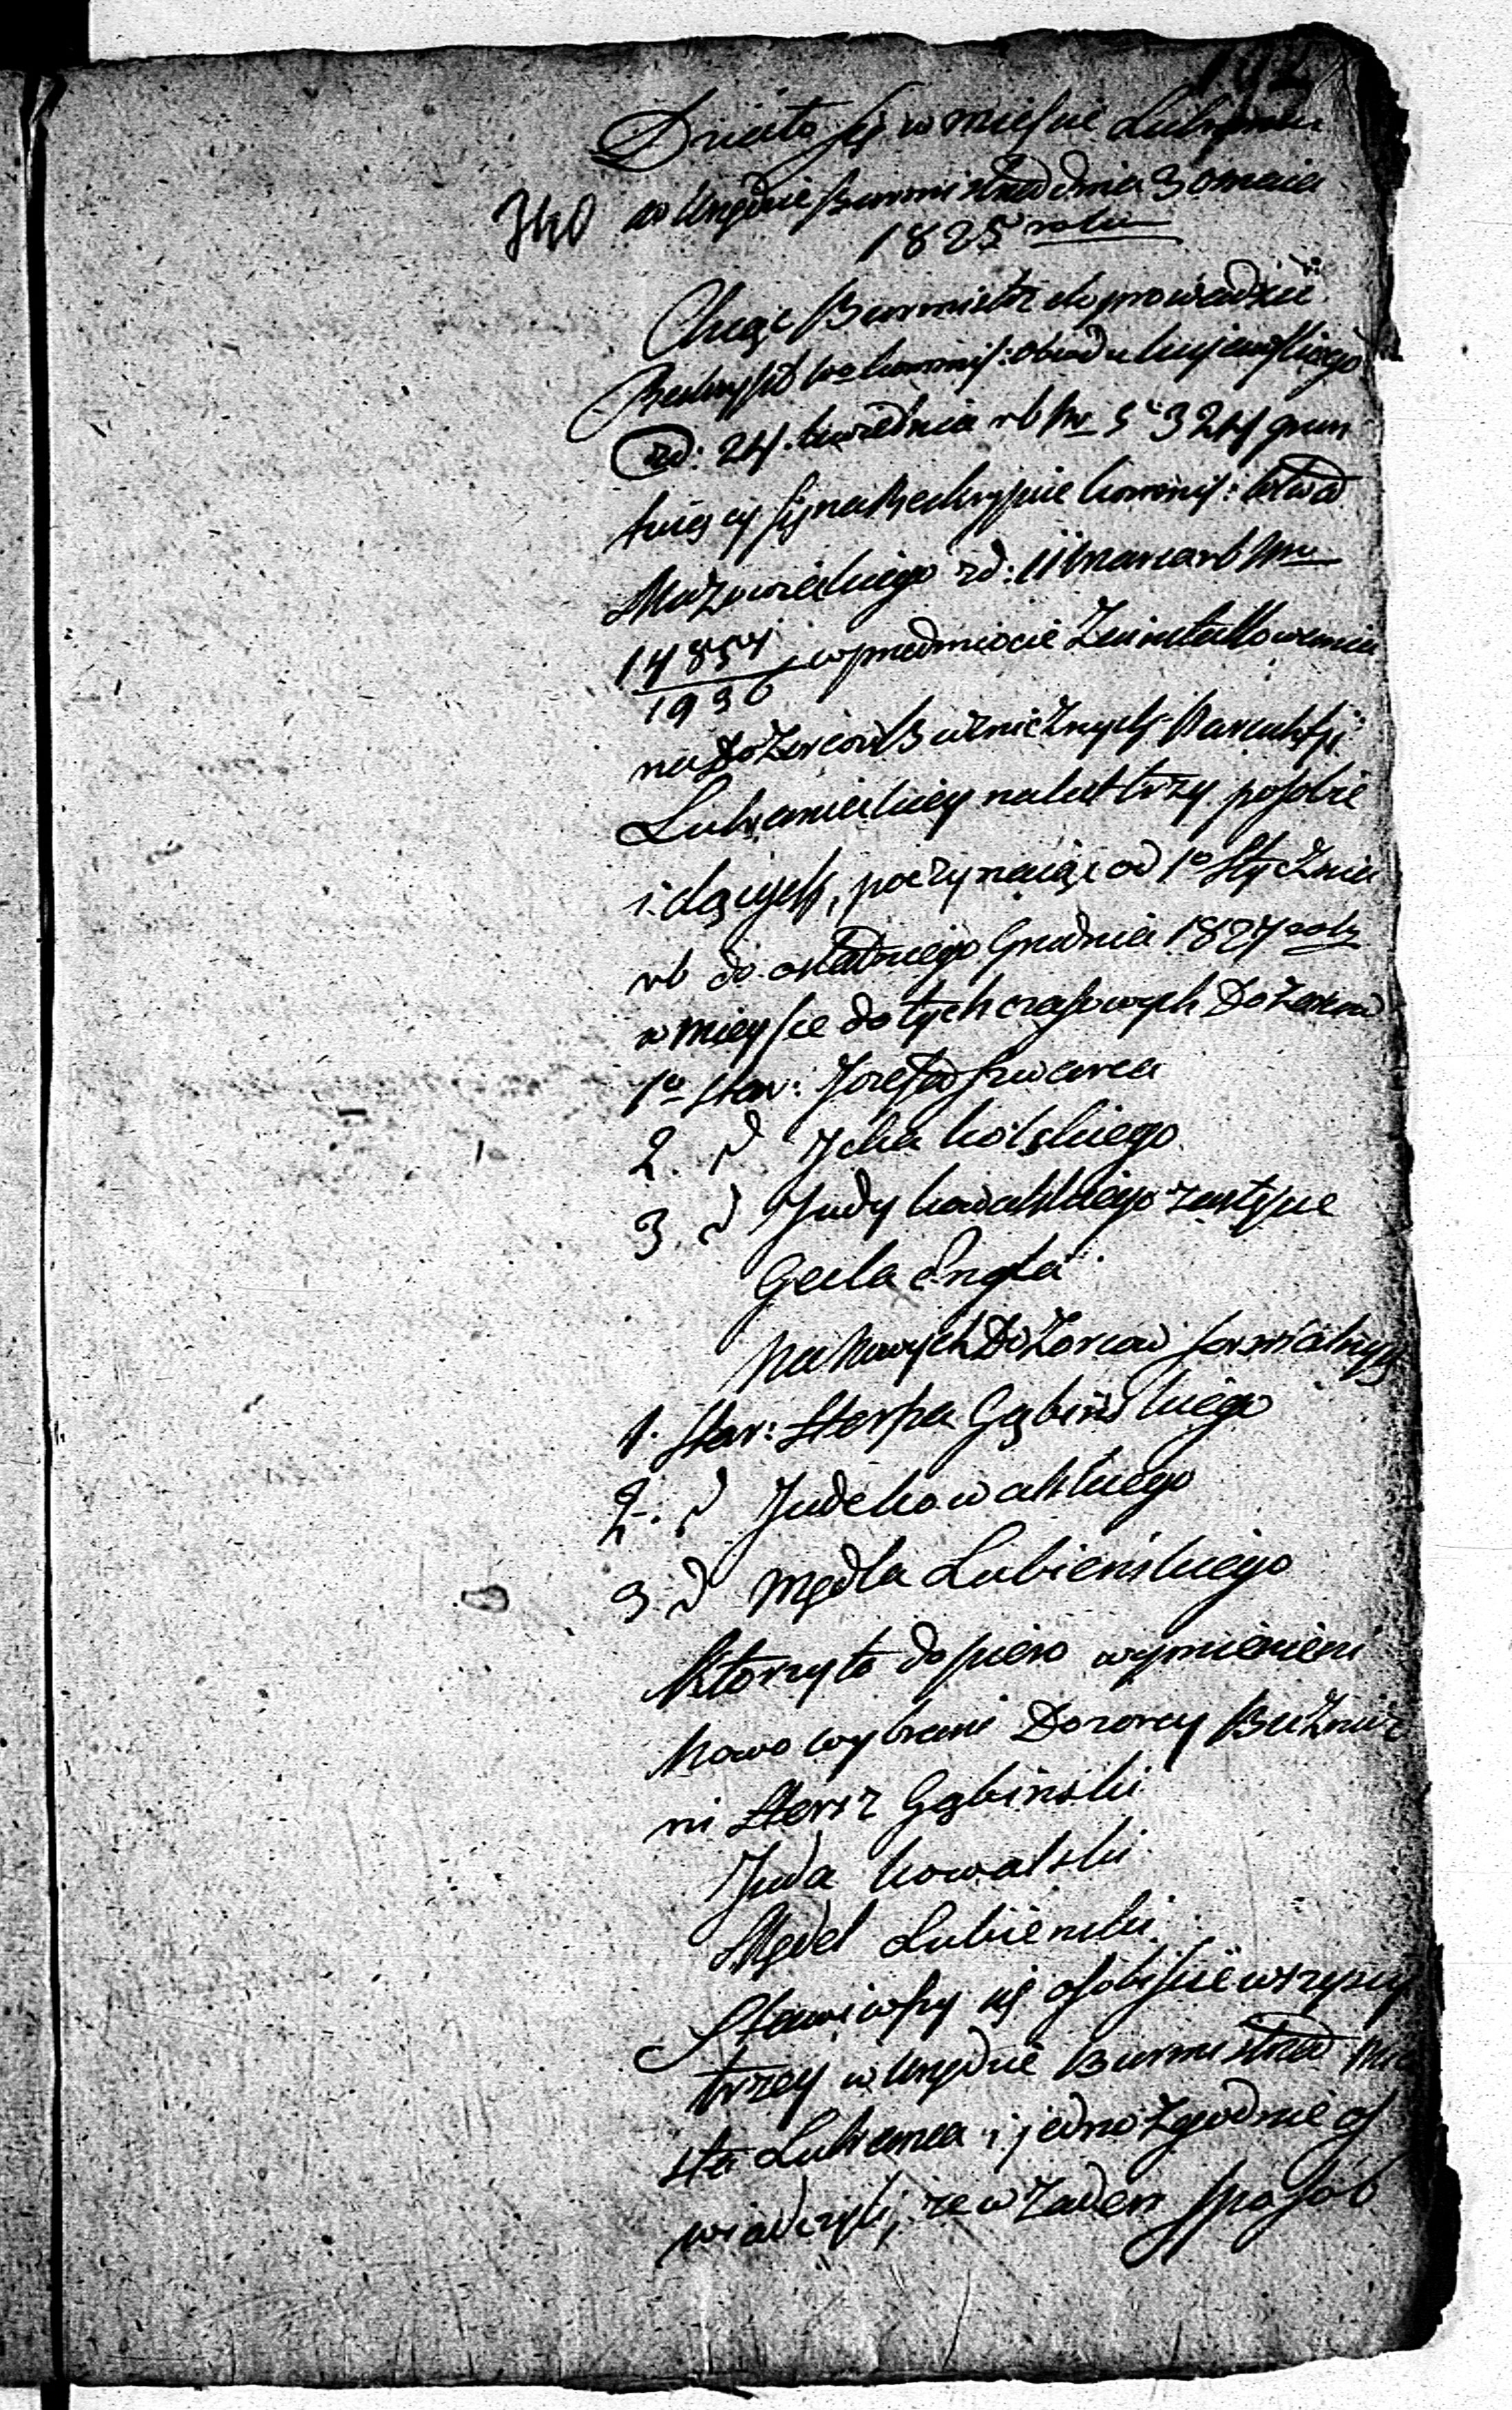 192
Działo się w mieście Lubrańcu
340 w Urzędzie Burmistrza dnia 30 maia
1825 roku
Chcąc Burmistrz doprowadzić
Reskrypt Wo Kommis: Obwodu Kujawskiego
zd: 24. kwietnia rb Nr 5324 grun
tuiący się na Reskrypcie Kommis: Wtwa
Mazowieckiego zd: 11 Marca rb Nro
14854/1936 w przedmiocie Zainstallowania
na Dozorców Bużnicznych Parachyi
Lubranieckiey na lat trzy po sobie
idących, poczynaiąc od 1o Stycznia
rb do ostatniego Grudnia 1827 roku
w mieysce dotychczasowych Dozorców
1o Star: Josefa Szwarca
2. d Icka Kolskiego
3. d Judy Kowalskiego zastępce
Gecla Engla
na Nowych Dozorców formalnych
1. Star: Herszka Gąbińskiego
2. d Jude Kowalskiego
3. d Mędla Lubieńskiego
Którzy to dopiero wymienieni
Nowo wybrani Dozorcy Bużnicz
ni Hersz Gąbiński
Juda Kowalski
Mędel Lubieński
Stawiwszy się osobiście wszyscy
trzey w Urzędzie Burmistrza Mia
sta Lubrańca i jednozgodnie oś
wiadczyli, że w żaden sposób